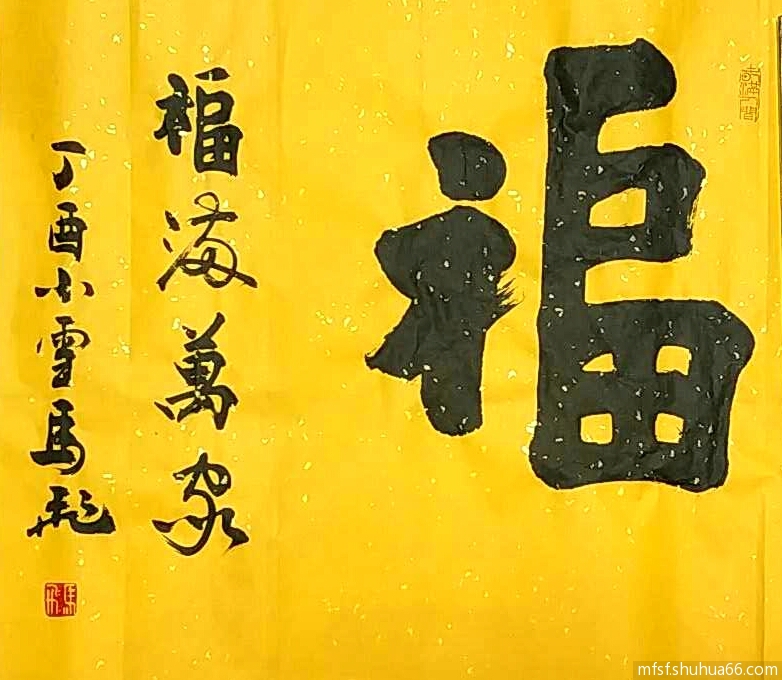 福
福满萬家
丁酉小雪馬飛
馬飛
mfsf.shuhua66.com